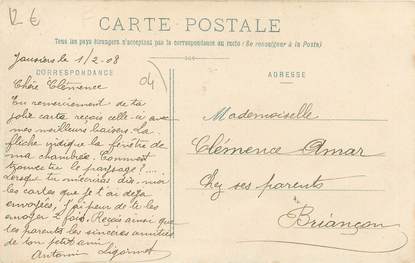 12 €
CARTE POSTALE
Tous les pays étrangers n'acceptent pas la correspondance au recto (Se renseigner à la Poste)
Jausiers le 1/2.08
04
CORRESPONDANCE
ADRESSE
Chère Clémence
En remerciement de ta
jolie carte reçois celle-ci avec
mes meilleurs baisers. La
flèche indique la fenêtre de
ma chambre. Comment
trouve tu le paysage?...
Lorsque tu m'écriras dis-moi
les cartes que je t'ai déjà
envoyées, J'ai peur de te les
envoyer 2 fois. Reçois ainsi que
tes parents les sincères amitiés
de ton petit ami
Antonin
Mademoiselle
Clémence Amar
Chez ses parents
Briançon